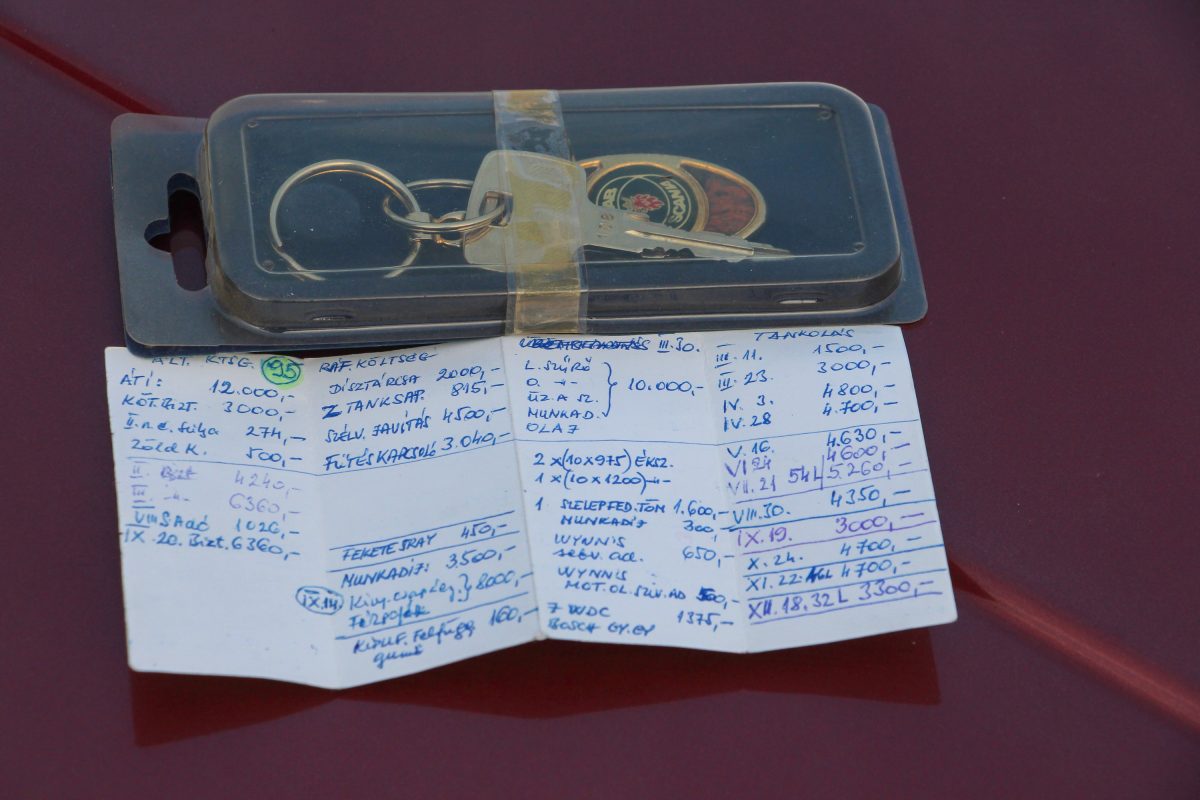 SAAB SCANIA
ÁLT. KTSG. 95
ÁTÍ: 12.000,-
KÖT. BIZT. 3000,-
274,-
Zöld K. 500,-
II. Bizt 4240,-
III. -"- 6360,-
VIII SADÓ 1026,-
IX. 20. Bizt. 6360,-
RÁF. KÖLTSÉG
DÍSZTÁRCSA 2000,-
Z TANKSAP. 815,-
SZÉLV. JAVÍTÁS 4500,-
FŰTÉSKAPCSOLÓ 3.040,-
FEKETE SPRAY 450,-
MUNKADÍJ: 3.500,-
IX.14 8000,-
Kipuf. Felfügg 160,-
gumi
III.30.
L. SZŰRŐ
O. -"-
ÜZ.A SZ. 10.000,-
MUNKAD.
OLAJ
2 x(10x975) ÉKSZ.
1 x(10x1200)-"-
1 SZELEPFED. TÖM 1.600,-
MUNKADÍJ 300,-
WYNNIS
650,-
WYNNIS
MOT. OL. SZIV. AD 500,-
7 WDC 1375,-
BOSCH GY.GY
TANKOLÁS
III. 11. 1500,-
III. 23. 3000,-
IV. 3. 4800,-
IV. 28 4.700,-
V. 16. 4.630,-
VI 24 4600,-
VII. 21 54L 5.260,-
VIII. 30. 4350,-
IX. 19. 3000,-
X. 24. 4700,-
XI. 22. 4700,-
XII. 18. 32 L 3300,-